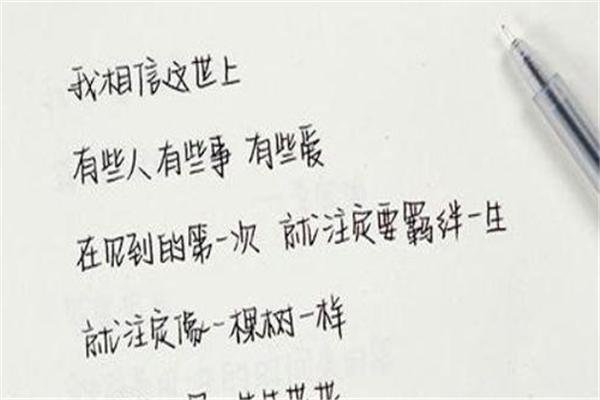 我相信这世上
有些人有些事 有些爱
在见到的第一次 就注定要羁绊一生
就注定像一棵树一样